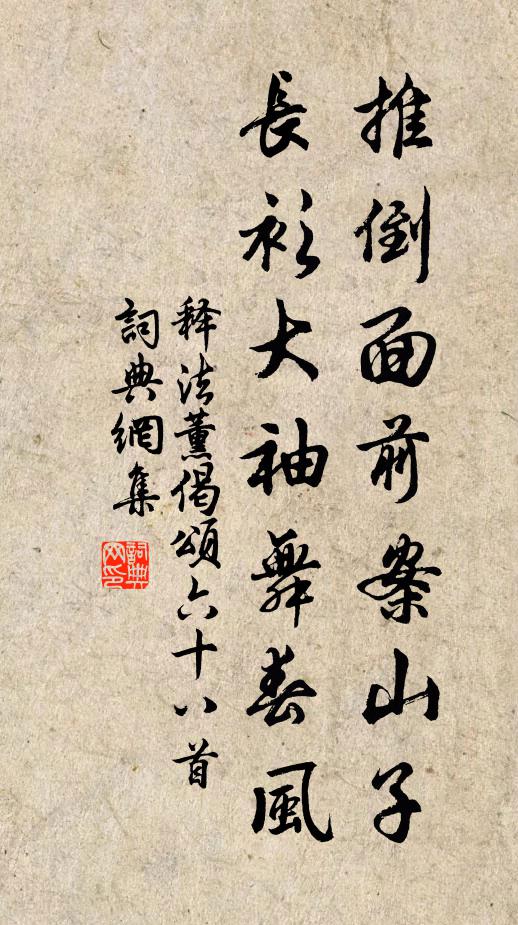 推倒面前案山子
長衫大袖舞春風
释法薰偈頌六十八首
詞典網集
詞典网印